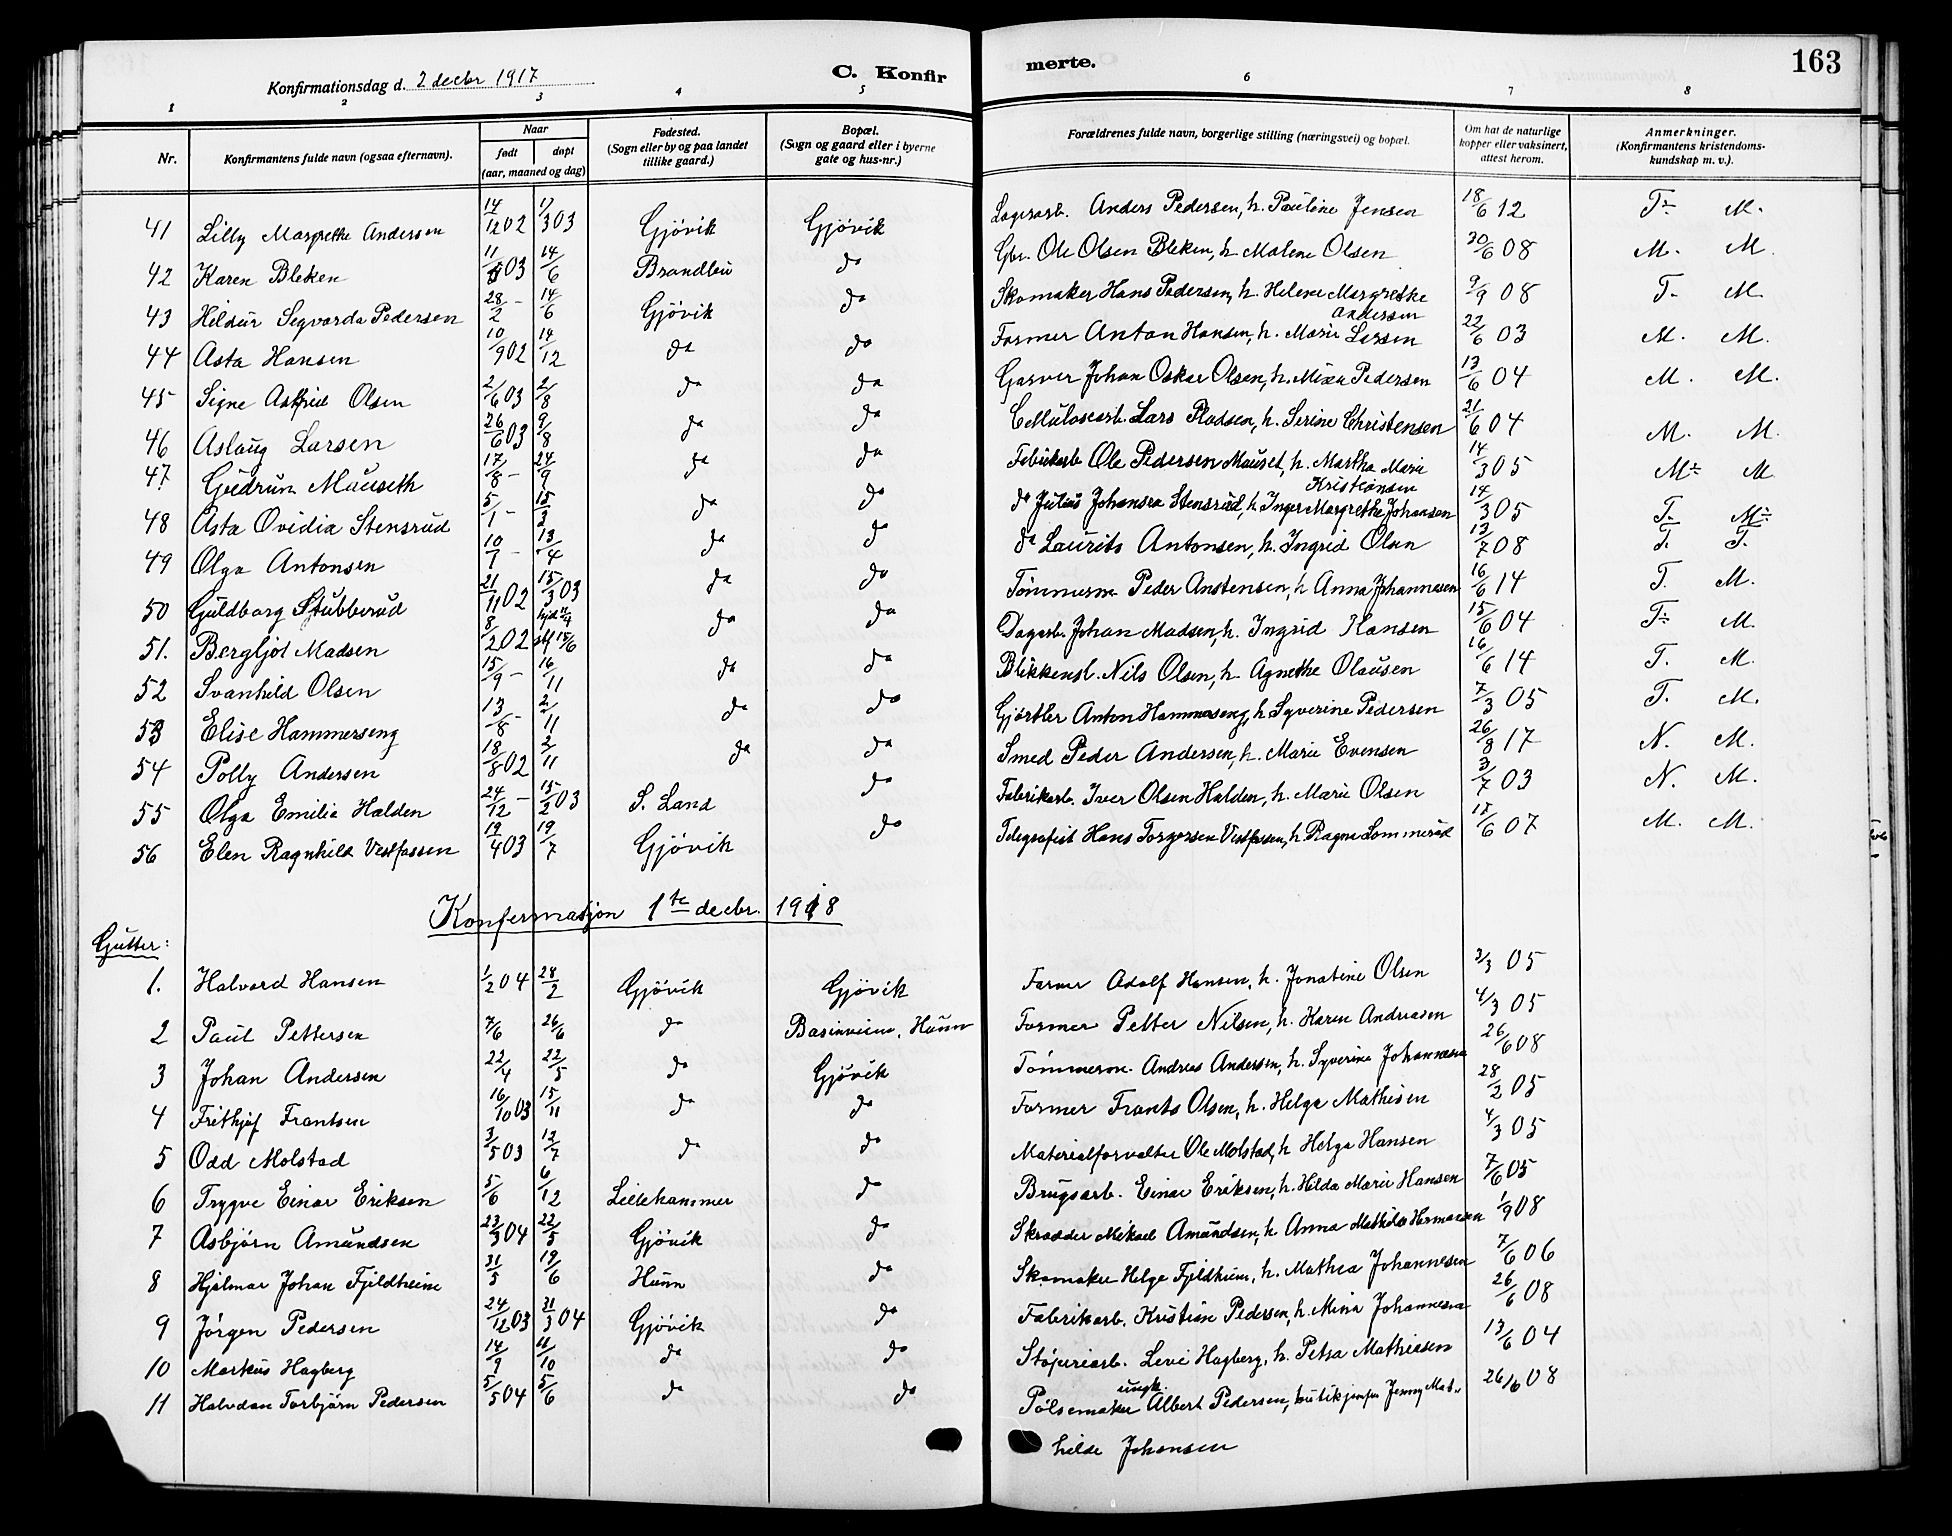 163
Konfirmationsdag d. 2 decbr 1917
C. Konfirmerte.
1 2 3 4 5 6 7 8
Nr. Konfirmantens fulde navn (ogsaa efternavn). Naar født døpt (aar, maaned og dag) Fødested. (Sogn eller by og paa landet tillike gaard.) Bopæl. (Sogn og gaard eller i byerne gate og hus-nr.) Forældrenes fulde navn, borgerlige stilling (næringsvei) og bopæl. Om hat de naturlige kopper eller vaksinert, attest herom. Anmerkninger. (Konfirmantens kristendomskundskap m. v.).
41 Lilly Margrethe Andersen 14/12 02 1/3 03 Gjøvik Gjøvik Lagerarb. Anders Pedersen, h. Pauline Jensen 18/6 12 T÷ M.
42 Karen Bleken 03 14/6 Brandbu do Gbr. Ole Olsen Bleken, h. Malene Olsen 30/6 08 M. M.
43 Hildur Segvarda Pedersen 28/2 - 14/6 Gjøvik do Skomaker Hans Pedersen, h. Helene Margrethe Andersen 9/9 08 T. M.
44 Asta Hansen 10/9 02 14/12 do do Former Anton Hansen, h. Marie Larsen 22/6 03 M. M.
45 Signe Astrid Olsen 2/6 03 2/8 do do Garver Johan Oskar Olsen, h. Mina Pedersen 13/6 04 M. M.
46 Aslaug Larsen 26/6 03 9/8 do do Cellulosearb. Lars Pladsen, h. Serine Christensen 21/6 04 M. M.
47 Gudrun Mauseth 17/8 - 24/9 do do Fabrikarb Ole Pedersen Mauset, h. Martha Marie Kristiansen 14/3 05 M÷ M
48 Asta Ovidia Stensrud 5/1 - 15/3 do do do Julius Johansen Stensrud, h. Inger Margrethe Johansen 14/3 05 T. M÷
49 Olga Antonsen 10/1 - 13/4 do do do Laurits Antonsen, h. Ingrid Olsen 13/7 08 T. T.
50 Guldborg Stubberud 21/11 02 15/3 03 do do Tømmerm. Peder Anstensen, h Anna Johannesen 16/6 14 T. M.
51. Bergljot Madsen 8/2 02 hjd 11/4 stf 15/6 do do Dagarb. Johan Madsen, h. Ingrid Hansen 15/6 04 T÷ M.
52 Svanhild Olsen 15/9 - 16/11 do do Blikkensl. Nils Olsen, h. Agnethe Olausen 16/6 14 T. M.
53 Elise Hammerseng 13/8 - 2/11 do do Gjørtler Anton Hammerseng, h Syverine Pedersen 7/3 05 T. M.
54 Polly Andersen 18/8 02 2/11 do do Smed Peder Andersen, h. Marie Evensen 26/8 17 N. M.
55 Olga Emilie Halden 24/12 - 15/2 03 S. Land do Fabrikarb. Iver Olsen Halden, h. Marie Olsen 3/7 03 N. M.
56 Elen Ragnhild Vestfossen 19/4 03 19/7 Gjøvik do Telegrafist Hans Torgersen Vestfossen, h. Ragna Sommerud 15/6 07 M. M.
Konfirmasjon 1te decbr. 1918
Gutter:
1. Halvard Hansen 1/2 04 28/2 Gjøvik Gjøvik Farver Adolf Hansen, h. Jonatine Olsen 3/3 05
2 Paul Pettersen 7/6 26/6 do Hunn Former Petter Nilsen, h. Karen Andreasen 4/3 05
3 Johan Andersen 22/4 22/5 do Gjøvik Tømmerm. Andreas Andersen, h. Syverine Johannesen 26/6 08
4 Frithjof Frantsen 16/10 03 15/11 do do Former Frants Olsen, h. Helga Mathisen 28/2 05
5 Odd Molstad 3/5 03 12/7 do do Materialforvalter Ole Molstad, h Helga Hansen 4/3 05
6 Trygve Einar Eriksen 5/6 6/12 Lillehammer do Brugsarb. Einar Eriksen, h. Hilda Marie Hansen 7/6 05
7 Asbjørn Amundsen 23/3 04 22/5 Gjøvik do Skrædder Mikael Amundsen, h Anna Mathilde Hermansen 1/9 08
8 Hjalmar Johan Fjeldheim 31/5 19/6 Hunn do Skomaker Helge Fjeldheim, h. Mathea Johannesen 7/6 06
9 Jørgen Pedersen 24/12 03 31/3 04 Gjøvik do Fabrikarb. Kristian Pedersen, h. Mina Johannesen 26/6 08
10 Markus Hagberg 14/9 11/10 do do Støperiarb. Levi Hagberg, h. Petra Mathiesen 13/6 04
11 Halvdan Torbjørn Pedersen 5/5 04 5/6 do do Pølsemaker ungk. Albert Pedersen, butikjomfru Jenny Mat-
hilde Johansen 26/6 08